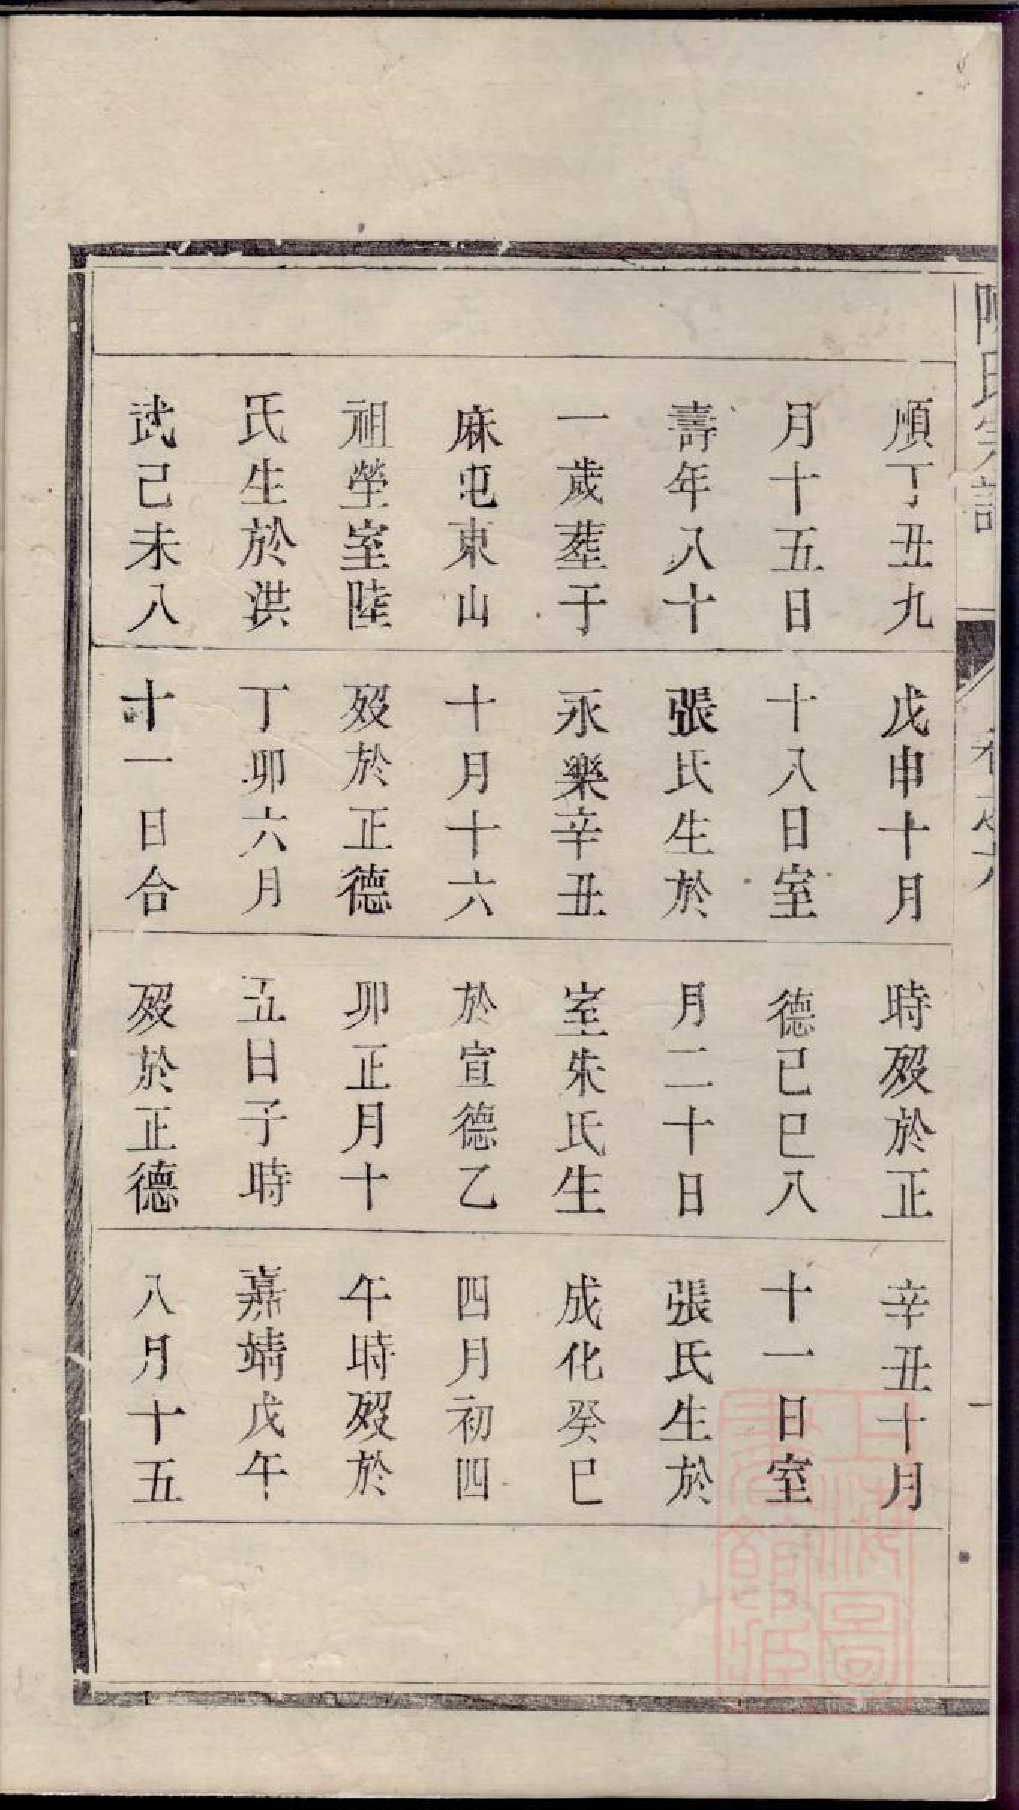 順丁丑九
月十五日
壽年八十
一歲塟于
麻屯東山
祖塋室陸
氏生於洪
武己未八
戊申十月
十八日室
張氏生於
永樂辛丑
十月十六
歿於正德
丁卯六月
十一日合
時歿於正
德己巳八
月二十日
室朱氏生
於宣德乙
卯正月十
五日子時
歿於正德
辛丑十月
十一日室
張氏生於
成化癸巳
四月初四
午時歿於
嘉靖戊午
八月十五
上海圖書館藏